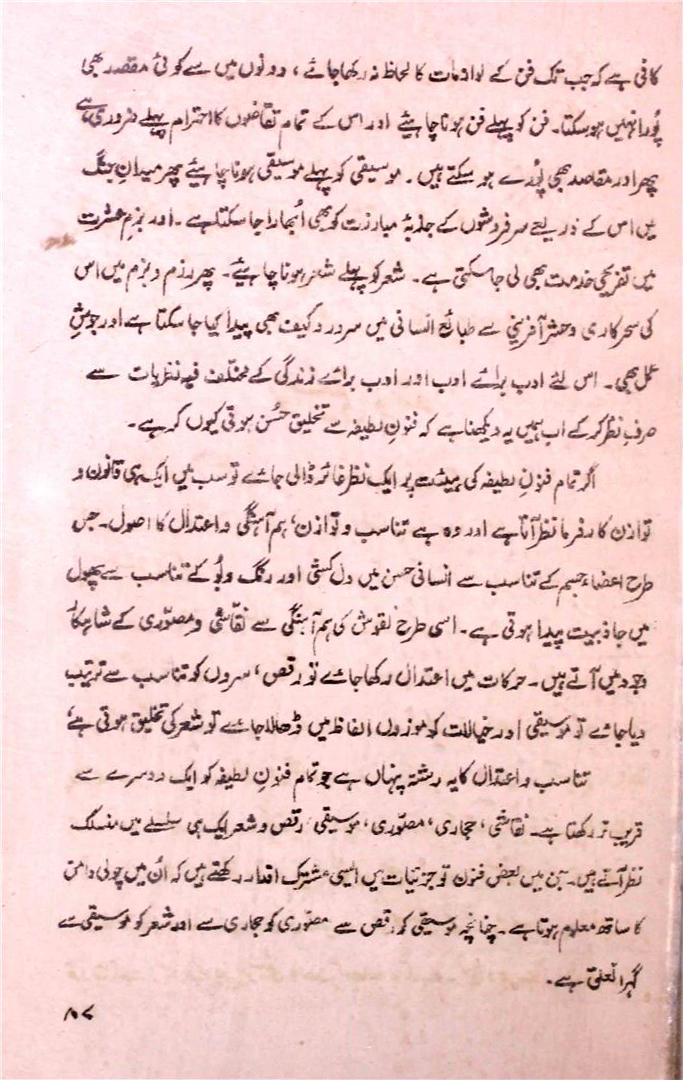 کافی ہے کہ جب تک فن کے لوازمات کا لحاظ نہ رکھا جائے، دونوں میں سے کوئی مقصد بھی
پُورا نہیں ہو سکتا۔ فن کو پہلے فن ہونا چاہیئے اور اس کے تمام تقاضوں کا احترام پہلے ضروری ہے
پھر اور مقاصد بھی پُورے ہو سکتے ہیں۔ موسیقی کو پہلے موسیقی ہونا چاہیئے پھر میدانِ جنگ
میں اس کے ذریعے سرفروشوں کے جذبۂ مبارزت کو بھی اُبھارا جا سکتا ہے۔ اور بزمِ عشرت
میں تفریحی خدمت بھی لی جا سکتی ہے۔ شعر کو پہلے شعر ہونا چاہیئے۔ پھر رزم و بزم میں اس
کی سحر کاری و حشر آفرینی سے طبائع انسانی میں سرور و کیف بھی پیدا کیا جا سکتا ہے اور جوشِ
عمل بھی۔ اس لئے ادب برائے ادب اور ادب برائے زندگی کے مختلف فیہ نظریات سے
صرفِ نظر کر کے اب ہمیں یہ دیکھنا ہے کہ فنونِ لطیفہ سے تخلیقِ حُسن ہوتی کیوں کر ہے۔
اگر تمام فنونِ لطیفہ کی ہیئت پر ایک نظرِ غائر ڈالی جائے تو سب میں ایک ہی قانون و
توازن کارفرما نظر آتا ہے اور وہ ہے تناسب و توازن، ہم آہنگی و اعتدال کا اصول۔ جس
طرح اعضاء جسم کے تناسب سے انسانی حسن میں دل کشی اور رنگ و بُو کے تناسب سے پھول
میں جاذبیت پیدا ہوتی ہے۔ اسی طرح نقوش کی ہم آہنگی سے نقّاشی و مصوّری کے شاہکار
وجود میں آتے ہیں۔ حرکات میں اعتدال رکھا جائے تو رقص، سروں کو تناسب سے ترتیب
دیا جائے تو موسیقی اور خیالات کو موزوں الفاظ میں ڈھالا جائے تو شعر کی تخلیق ہوتی ہے
تناسب و اعتدال کا یہ رشتہ پنہاں ہے جو تمام فنونِ لطیفہ کو ایک دوسرے سے
قریب تر رکھتا ہے۔ نقاشی، حجاری، مصوّری، موسیقی، رقص و شعر ایک ہی سلسلے میں منسلک
نظر آتے ہیں۔ جن میں بعض فنون تو جزئیات میں ایسی مشترک اقدار رکھتے ہیں کہ اُن میں چولی دامن
کا ساتھ معلوم ہوتا ہے۔ چنانچہ موسیقی کو رقص سے مصوّری کو حجاری سے اور شعر کو موسیقی سے
گہرا تعلق ہے۔